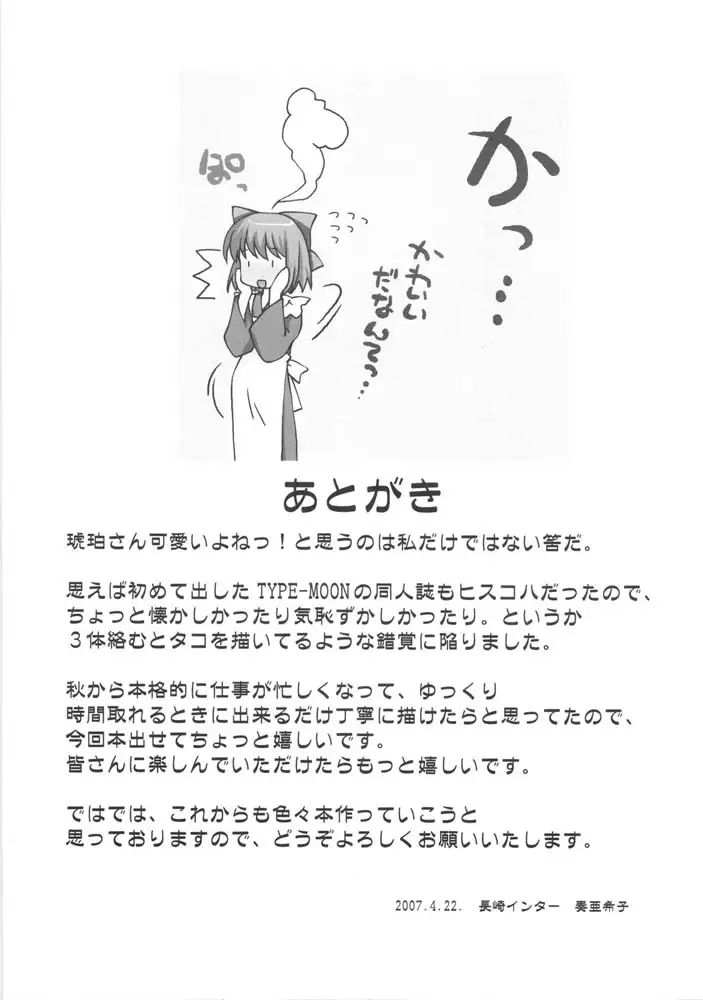 かっ…
かわいい
だなんてっ…
ぽっ
っっっ
っっ
あとがき
琥珀さん可愛いよねっ！と思うのは私だけではない答だ。
思えば初めて出したTYPE-MOONの同人誌もヒスコハだったので、
ちょっと懐かしかったり気恥ずかしかったり。というか
３体絡むとタコを描いてるような錯覚に陥りました。
秋から本格的に仕事が忙しくなって、ゆっくり
時間取れるときに出来るだけ丁寧に描けたらと思ってたので、
今回本出せてちょっと嬉しいです。
皆さんに楽しんでいただけたらもっと嬉しいです。
ではでは、これからも色々本作っていこうと
思っておりますので、どうぞよろしくお願いいたします。
2007.4.22. 長崎インター 奏亜希子